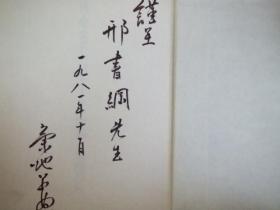 謹呈
邢書綱先生
一九八一年十月
菊地